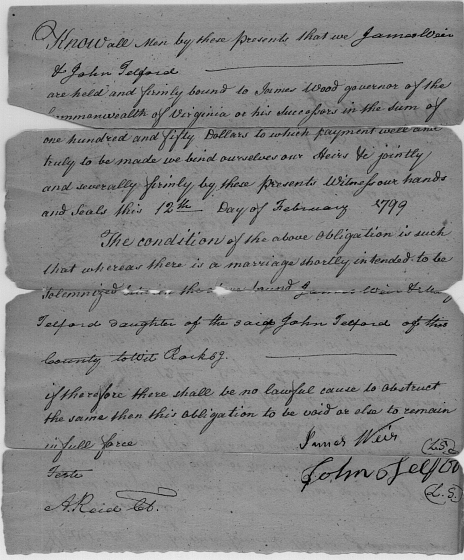 Know all Men by these Presents that we James Weir
& John Telford
are held and firmly bound to James Wood governor of the
Commonwealth of Virginia or his successors in the sum of
one hundred and fifty Dollars to which payment well and
truly to be made we bind ourselves our Heirs &c jointly
and severally firmly by these presents Witness our hands
and seals this 12th Day of February 1799
The condition of the above obligation is such
that whereas there is a marriage shortly intended to be
Solemnized between the above bound James Weir &
Telford daughter of the said John Telford of this
County to wit Rockbg.
if therefore there shall be no lawful cause to obstruct
the same then this obligation to be void or else to remain
in full force
James Weir
(L.S.)
Teste
John Telford
(L.S.)
A. Reid Ct.